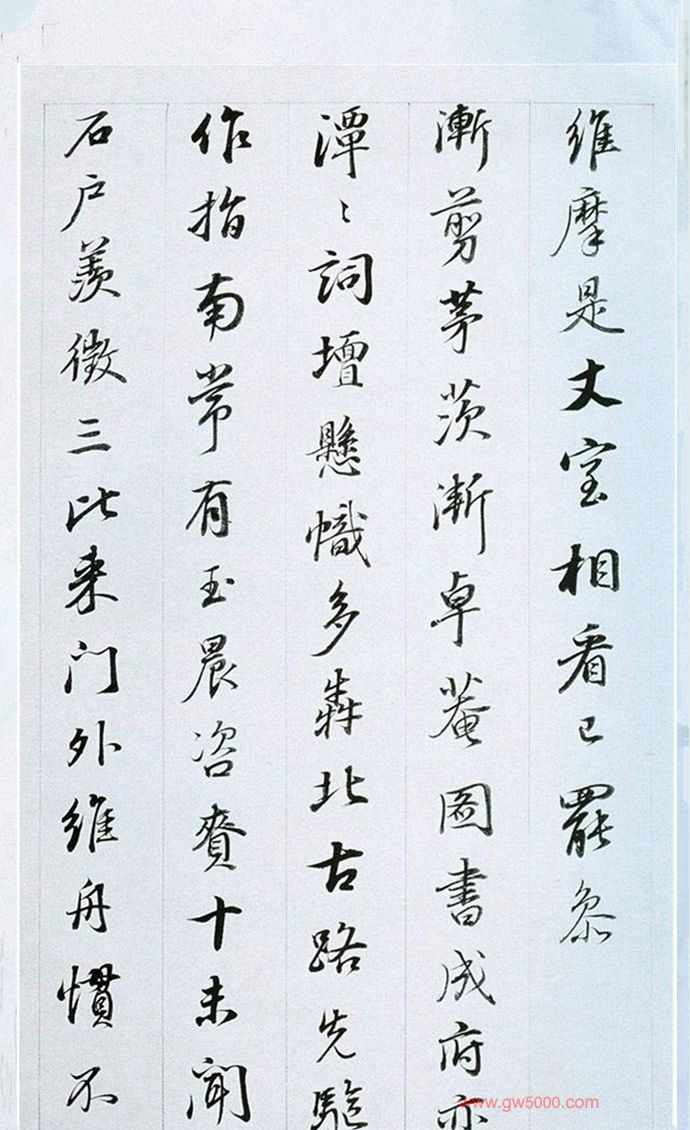 维摩是丈室相看已罢参
渐剪茅茨渐卓庵图书成府亦
潭〻词壇懸幟多犇北古路先驅
作指南常有玉晨咨賚十未闻
石户羡徵三比来门外维舟慣不
www.gw5000.com